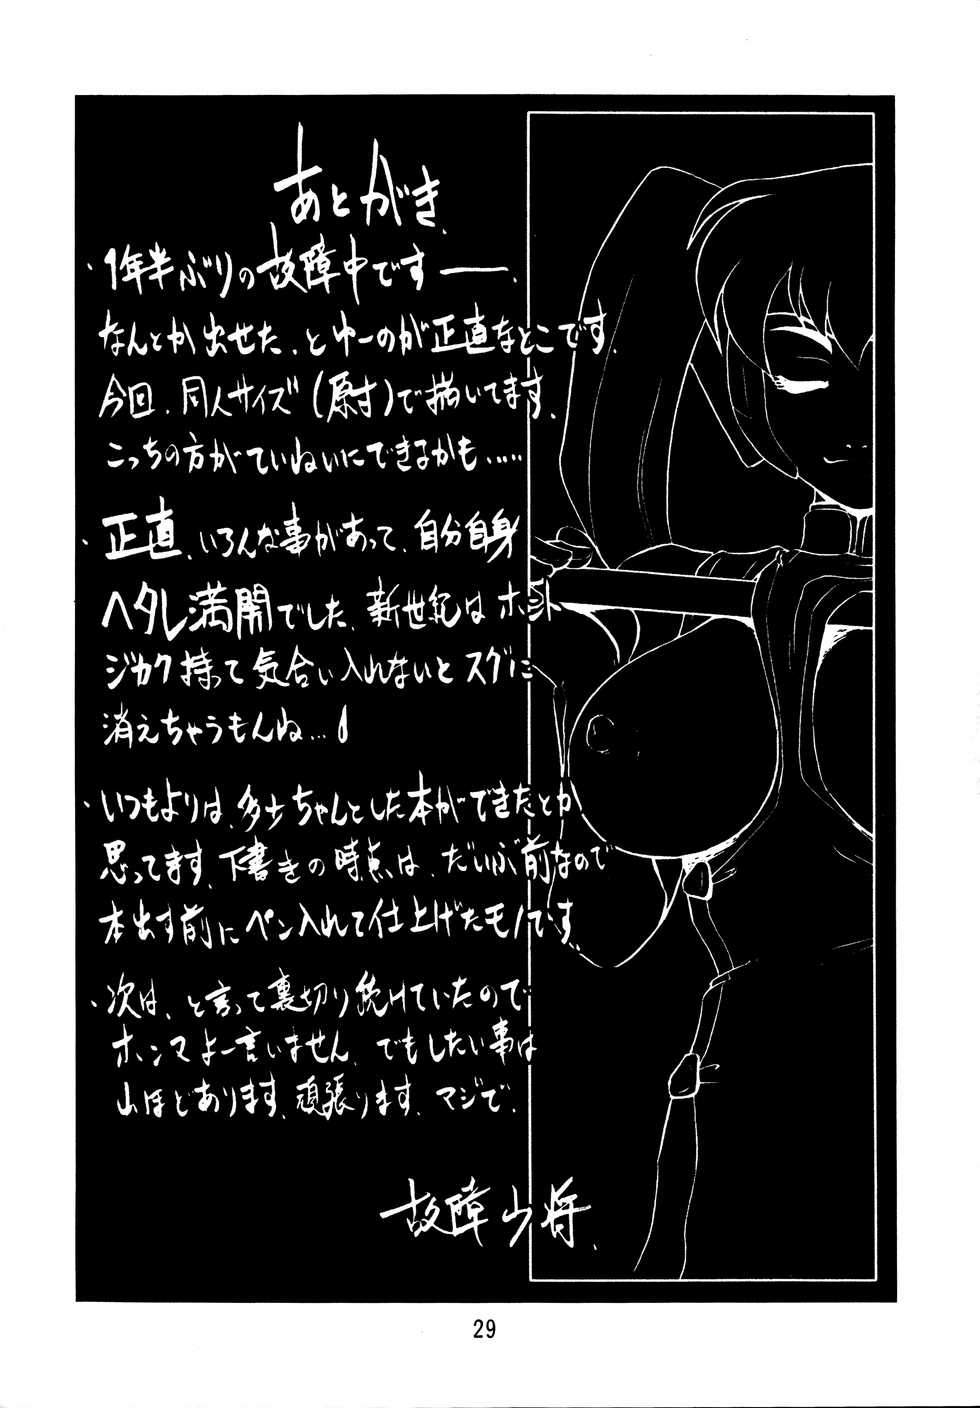 あとがき
・1年半ぶりの故障中です――.
なんとか出せた、とゆーのが正直なとこです.
今回、同人サイズ(原寸)で描いてます.
こっちの方がていねいにできるかも……
・正直、いろんな事があって、自分自身
ヘタレ満開でした、新世紀はホント
ジカク持って気合い入れないとスグに
消えちゃうもんね…
・いつもよりは、多少ちゃんとした本ができたとか
思ってます、下書きの時点は、だいぶ前なので
本出す前にペン入れて仕上げたモノです.
・次は、と言って裏切り続けていたので
ホンマよー言いません、でもしたい事は
山ほどあります、頑張ります、マジで.
故障少将.
29